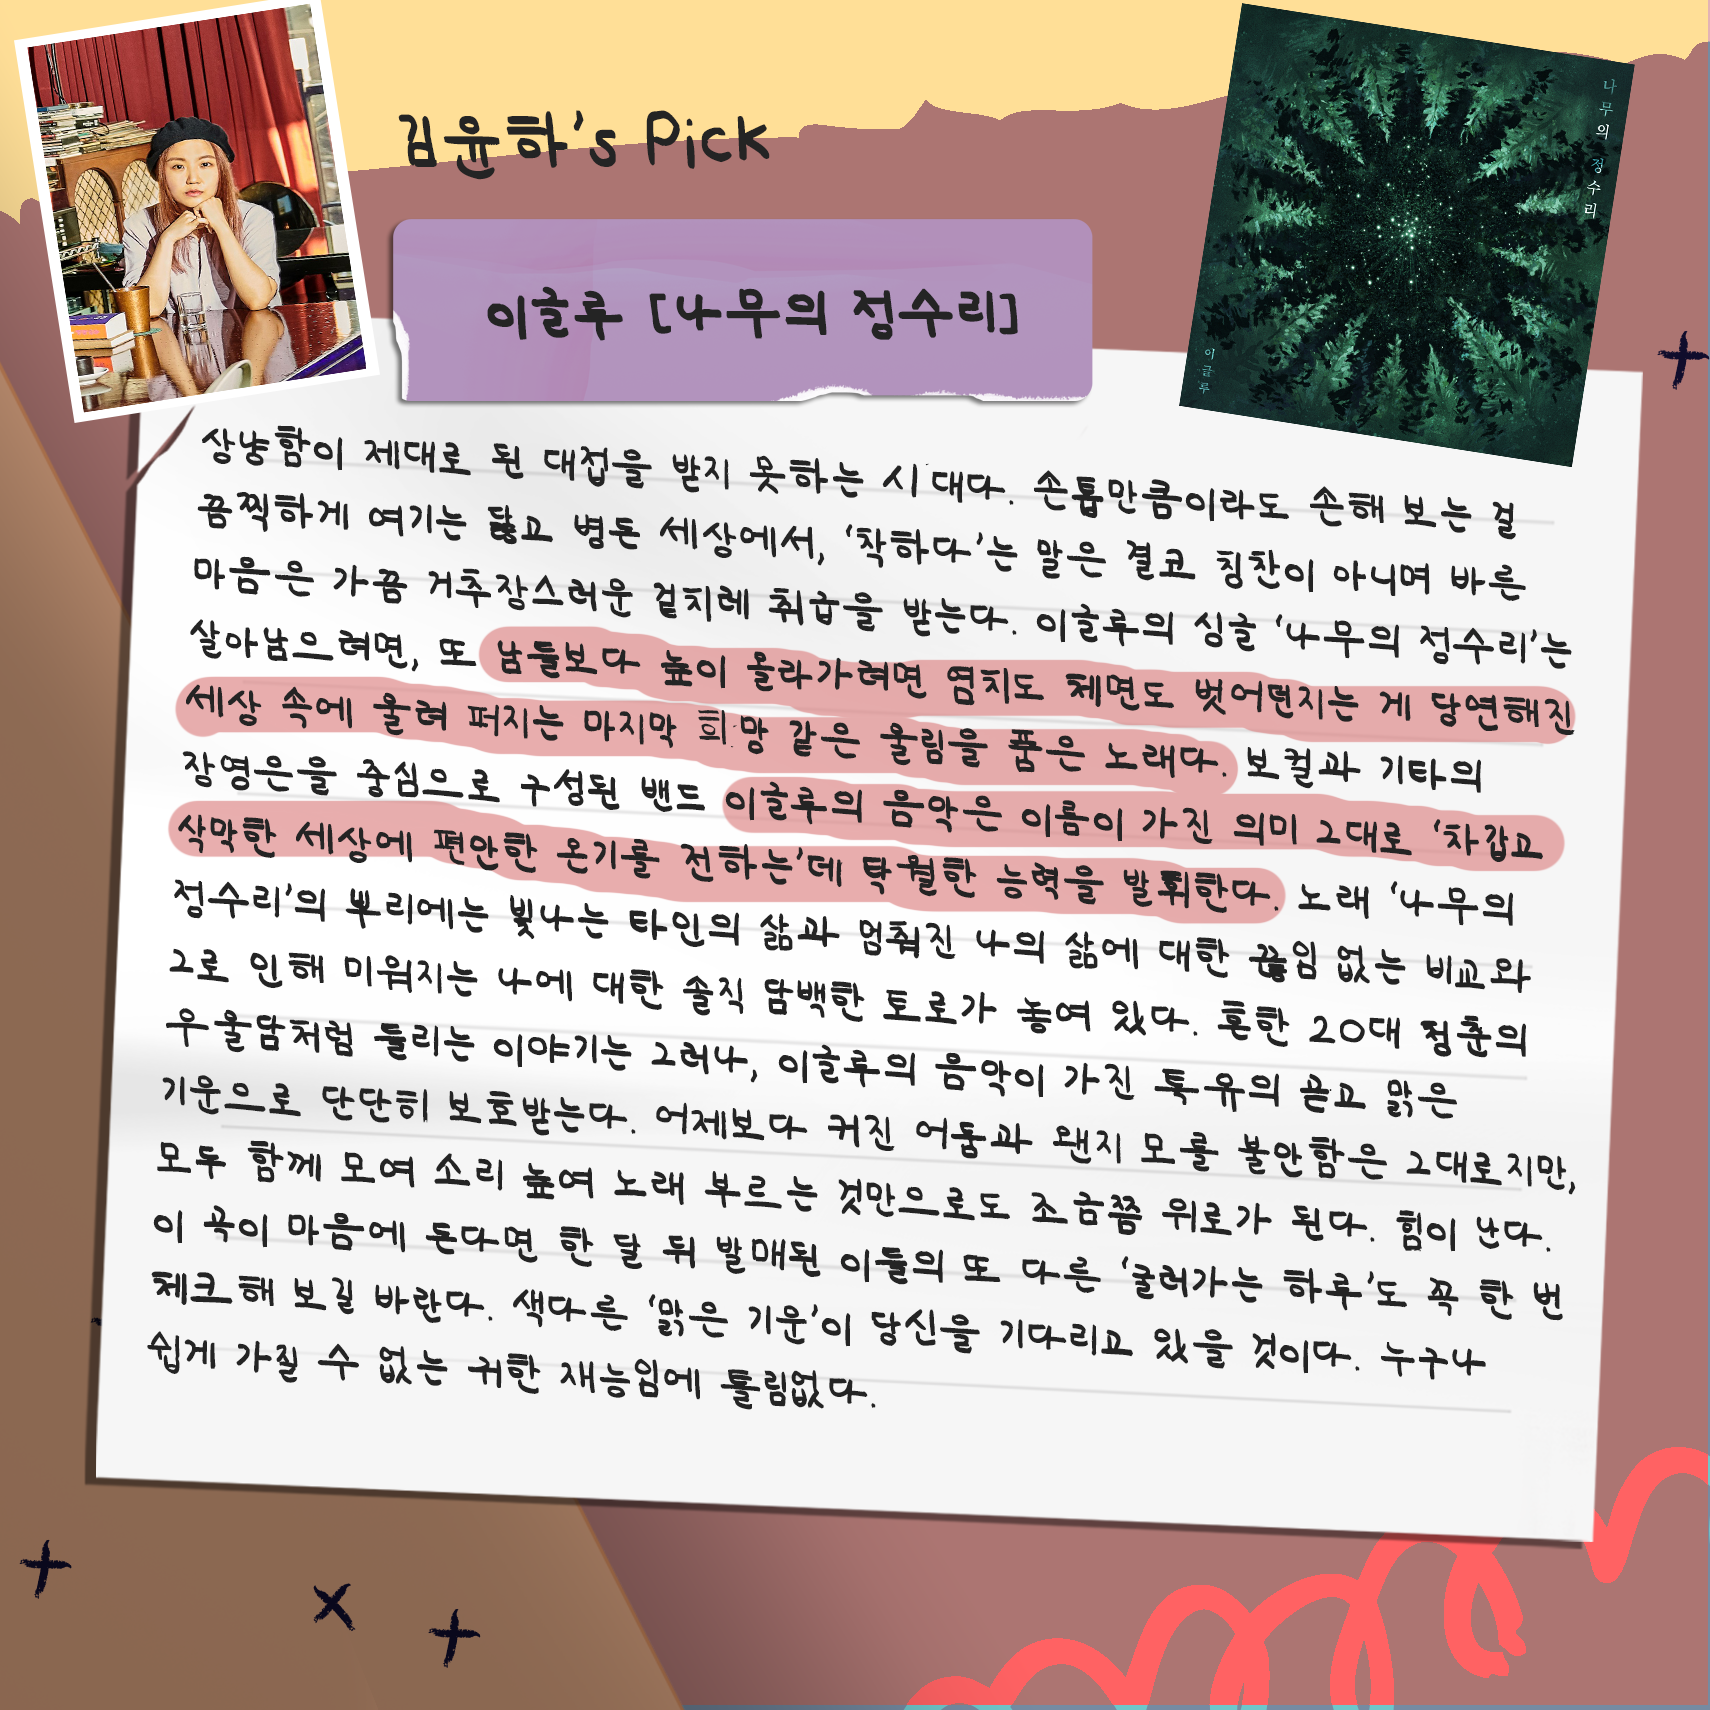 김윤하's Pick
이글루 [나무의 정수리]
나무의 정수리
이글루
상냥함이 제대로 된 대접을 받지 못하는 시대다. 손톱만큼이라도 손해 보는 걸
끔찍하게 여기는 닳고 병든 세상에서, '착하다'는 말은 결코 칭찬이 아니며 바른
마음은 가끔 거추장스러운 겉치레 취급을 받는다. 이글루의 싱글 '나무의 정수리'는
살아남으려면, 또 남들보다 높이 올라가려면 염치도 체면도 벗어던지는 게 당연해진
세상 속에 울려 퍼지는 마지막 희망 같은 울림을 품은 노래다. 보컬과 기타의
장영은을 중심으로 구성된 밴드 이글루의 음악은 이름이 가진 의미 그대로 '차갑고
삭막한 세상에 편안한 온기를 전하는'데 탁월한 능력을 발휘한다. 노래 '나무의
정수리'의 뿌리에는 빛나는 타인의 삶과 멈춰진 나의 삶에 대한 끊임 없는 비교와
그로 인해 미워지는 나에 대한 솔직 담백한 토로가 놓여 있다. 흔한 20대 청춘의
우울담처럼 들리는 이야기는 그러나, 이글루의 음악이 가진 특유의 곧고 맑은
기운으로 단단히 보호받는다. 어제보다 커진 어둠과 왠지 모를 불안함은 그대로지만,
모두 함께 모여 소리 높여 노래 부르는 것만으로도 조금쯤 위로가 된다. 힘이 난다.
이 곡이 마음에 든다면 한 달 뒤 발매된 이들의 또 다른 '굴러가는 하루'도 꼭 한 번
체크해 보길 바란다. 색다른 '맑은 기운'이 당신을 기다리고 있을 것이다. 누구나
쉽게 가질 수 없는 귀한 재능임에 틀림없다.